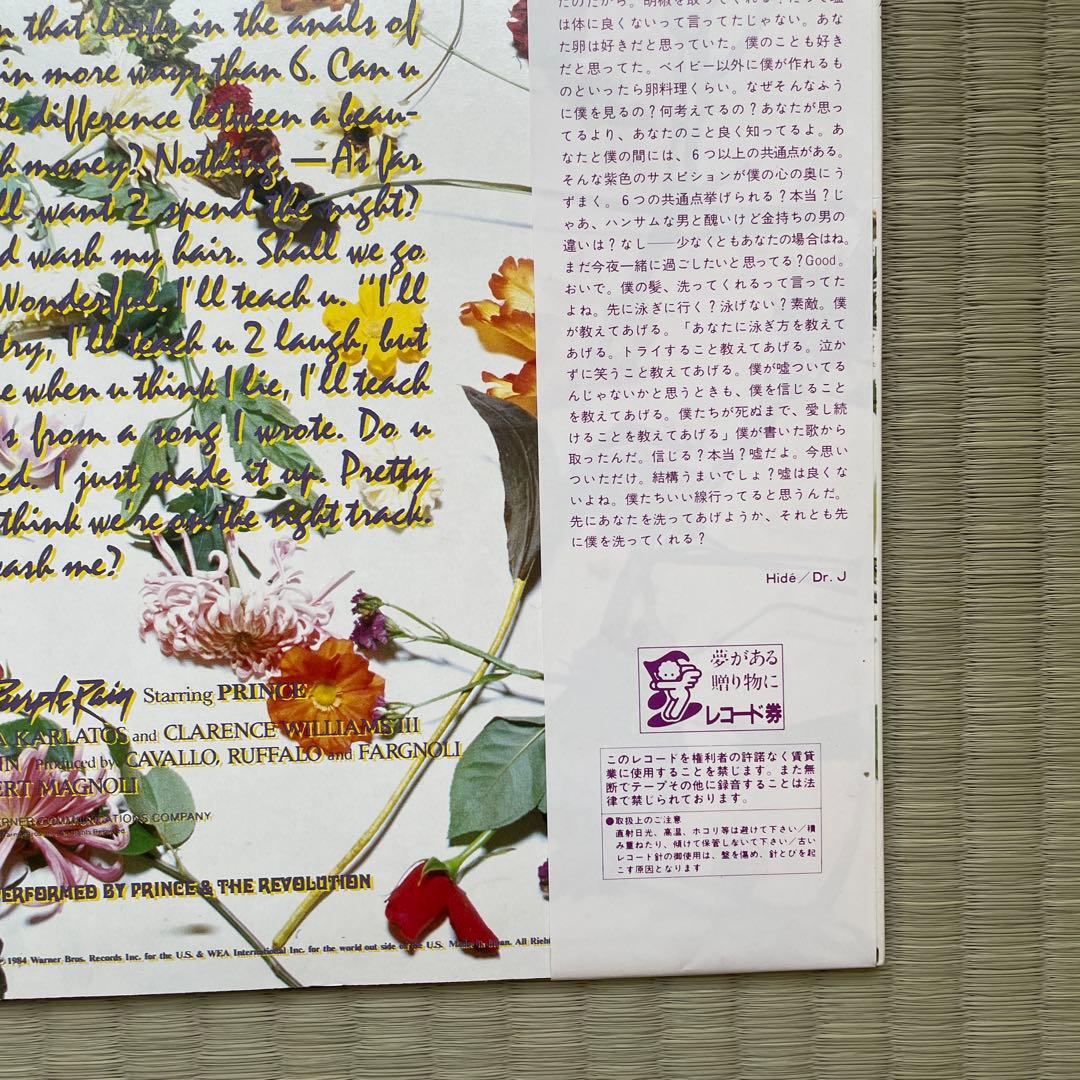 n that lurks in the anals of
in more ways than 6. Can u
he difference between a beau-
h money? Nothing, —As far
ll want 2 spend the night?
d wash my hair. Shall we go
Wonderful. I'll teach u. "I'll
try, I'll teach u 2 laugh, but
e when u think I lie, I'll teach
s from a song I wrote. Do u
ed. I just made it up. Pretty
think we're on the right track.
ash me?
Purple Rain Starring PRINCE
A KARLATOS and CLARENCE WILLIAMS III
IN Produced by CAVALLO, RUFFALO and FARGNOLI
ERT MAGNOLI
RNER COMMUNICATIONS COMPANY
ERFORMED BY PRINCE & THE REVOLUTION
1984 Warner Bros. Records Inc. for the U.S. & WEA International Inc. for the world out side of the U.S. Made in Japan. All Righ
たのだから。胡椒を取ってくれる？だって塩
は体に良くないって言ってたじゃない。あな
た卵は好きだと思っていた。僕のことも好き
だと思ってた。ベイビー以外に僕が作れるも
のといったら卵料理くらい。なぜそんなふう
に僕を見るの？何考えてるの？あなたが思っ
てるより、あなたのこと良く知ってるよ。あ
なたと僕の間には、6つ以上の共通点がある。
そんな紫色のサスピションが僕の心の奥にう
ずまく。6つの共通点挙げられる？本当？じ
ゃあ、ハンサムな男と醜いけど金持ちの男の
違いは？なし——少なくともあなたの場合はね。
まだ今夜一緒に過ごしたいと思ってる？Good。
おいで。僕の髪、洗ってくれるって言ってた
よね。先に泳ぎに行く？泳げない？素敵。僕
が教えてあげる。「あなたに泳ぎ方を教えて
あげる。トライすること教えてあげる。泣か
ずに笑うこと教えてあげる。僕が嘘ついてる
んじゃないかと思うときも、僕を信じること
を教えてあげる。僕たちが死ぬまで、愛し続
けることを教えてあげる」僕が書いた歌から
取ったんだ。信じる？本当？嘘だよ。今思い
ついただけ。結構うまいでしょ？嘘は良くな
いよね。僕たちいい線行ってると思うんだ。
先にあなたを洗ってあげようか、それとも先
に僕を洗ってくれる？
Hidé／Dr. J
夢がある
贈り物に
レコード券
このレコードを権利者の許諾なく賃貸
業に使用することを禁じます。また無
断でテープその他に録音することは法
律で禁じられております。
●取扱上のご注意
直射日光、高温、ホコリ等は避けて下さい／積
み重ねたり、傾けて保管しないで下さい／古い
レコード針の御使用は、盤を傷め、針とびを起
こす原因となります